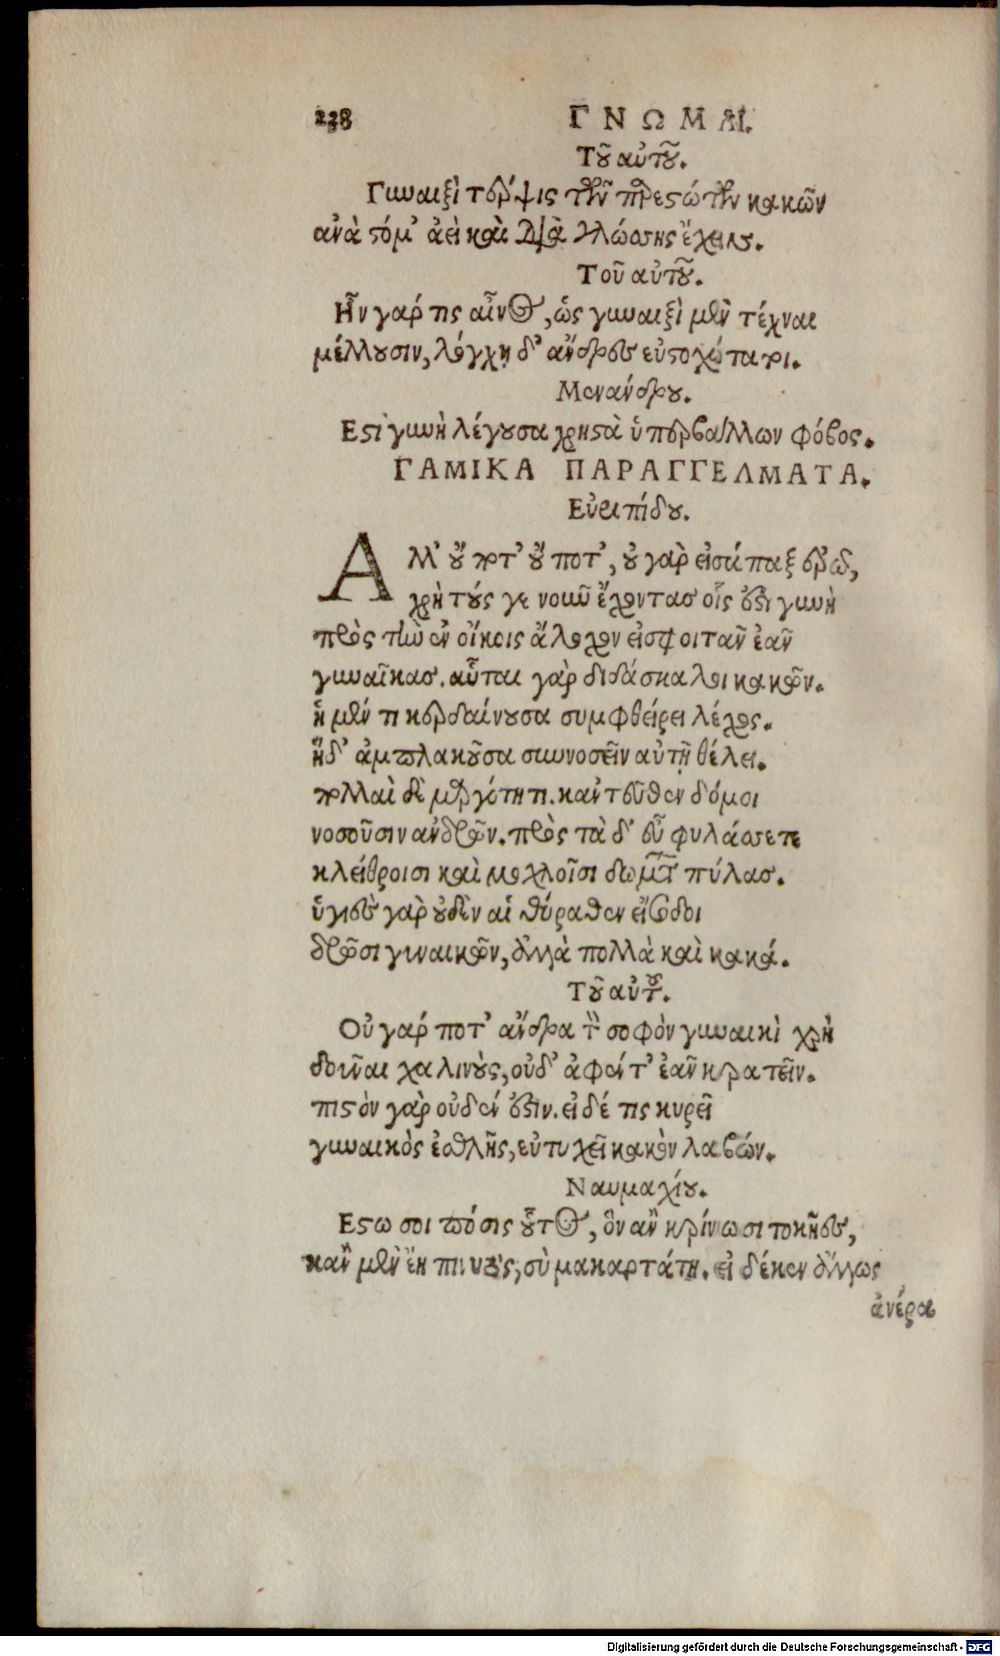 238 ΓΝΩΜΑΙ.
Τοῦ αὐτοῦ.
Γυναιξὶ τέρψις τῶν παρεστώτων κακῶν
ἀνὰ στόμ' ἀεὶ καὶ διὰ γλώσσης ἔχειν.
Τοῦ αὐτοῦ.
Ἦν γάρ τις αἶνος, ὡς γυναιξὶ μὲν τέχναι
μέλλουσιν, λόγχῃ δ' ἄνδρες εὐστοχώτεροι.
Μενάνδρου.
Εστὶ γυνὴ λέγουσα χρηστὰ ὑπερβάλλων φόβος.
ΓΑΜΙΚΑ ΠΑΡΑΓΓΕΛΜΑΤΑ.
Εὐριπίδου.
Αλλ' οὔ ποτ' οὔ ποτ', οὐ γὰρ εἰσάπαξ ἐρῶ,
χρὴ τούς γε νοῦν ἔχοντας οἷς ἐστι γυνὴ
πρὸς τὴν ἐν οἴκοις ἄλοχον εἰσφοιτᾶν ἐᾶν
γυναῖκας. αὗται γὰρ διδάσκαλοι κακῶν.
ἡ μέν τι κερδαίνουσα συμφθείρει λέχος.
ἡ δ' ἀμπλακοῦσα συννοσεῖν αὐτῇ θέλει.
πολλαὶ δὲ μαργότητι. κἀντεῦθεν δόμοι
νοσοῦσιν ἀνδρῶν. πρὸς τὰ δ' εὖ φυλάσσετε
κλείθροισι καὶ μοχλοῖσι δωμάτων πύλας.
ὑγιὲς γὰρ οὐδὲν αἱ θύραθεν εἴσοδοι
δρῶσι γυναικῶν, ἀλλὰ πολλὰ καὶ κακά.
Τοῦ αὐτοῦ.
Οὐ γάρ ποτ' ἄνδρα τὸν σοφὸν γυναικὶ χρὴ
δοῦναι χαλινοὺς, οὐδ' ἀφέντ' ἐᾶν κρατεῖν.
πιστὸν γὰρ οὐδέν ἐστιν. εἰ δέ τις κυρεῖ
γυναικὸς ἐσθλῆς, εὐτυχεῖ κακὸν λαβών.
Ναυμαχίου.
Εστω σοι πόσις οὗτος, ὃν ἂν κρίνωσι τοκῆες,
κἂν μὲν ἔῃ πινυτὸς, σὺ μακαρτάτη. εἰ δέ κεν ἄλλως
ἀνέρα
Digitalisierung gefördert durch die Deutsche Forschungsgemeinschaft - DFG